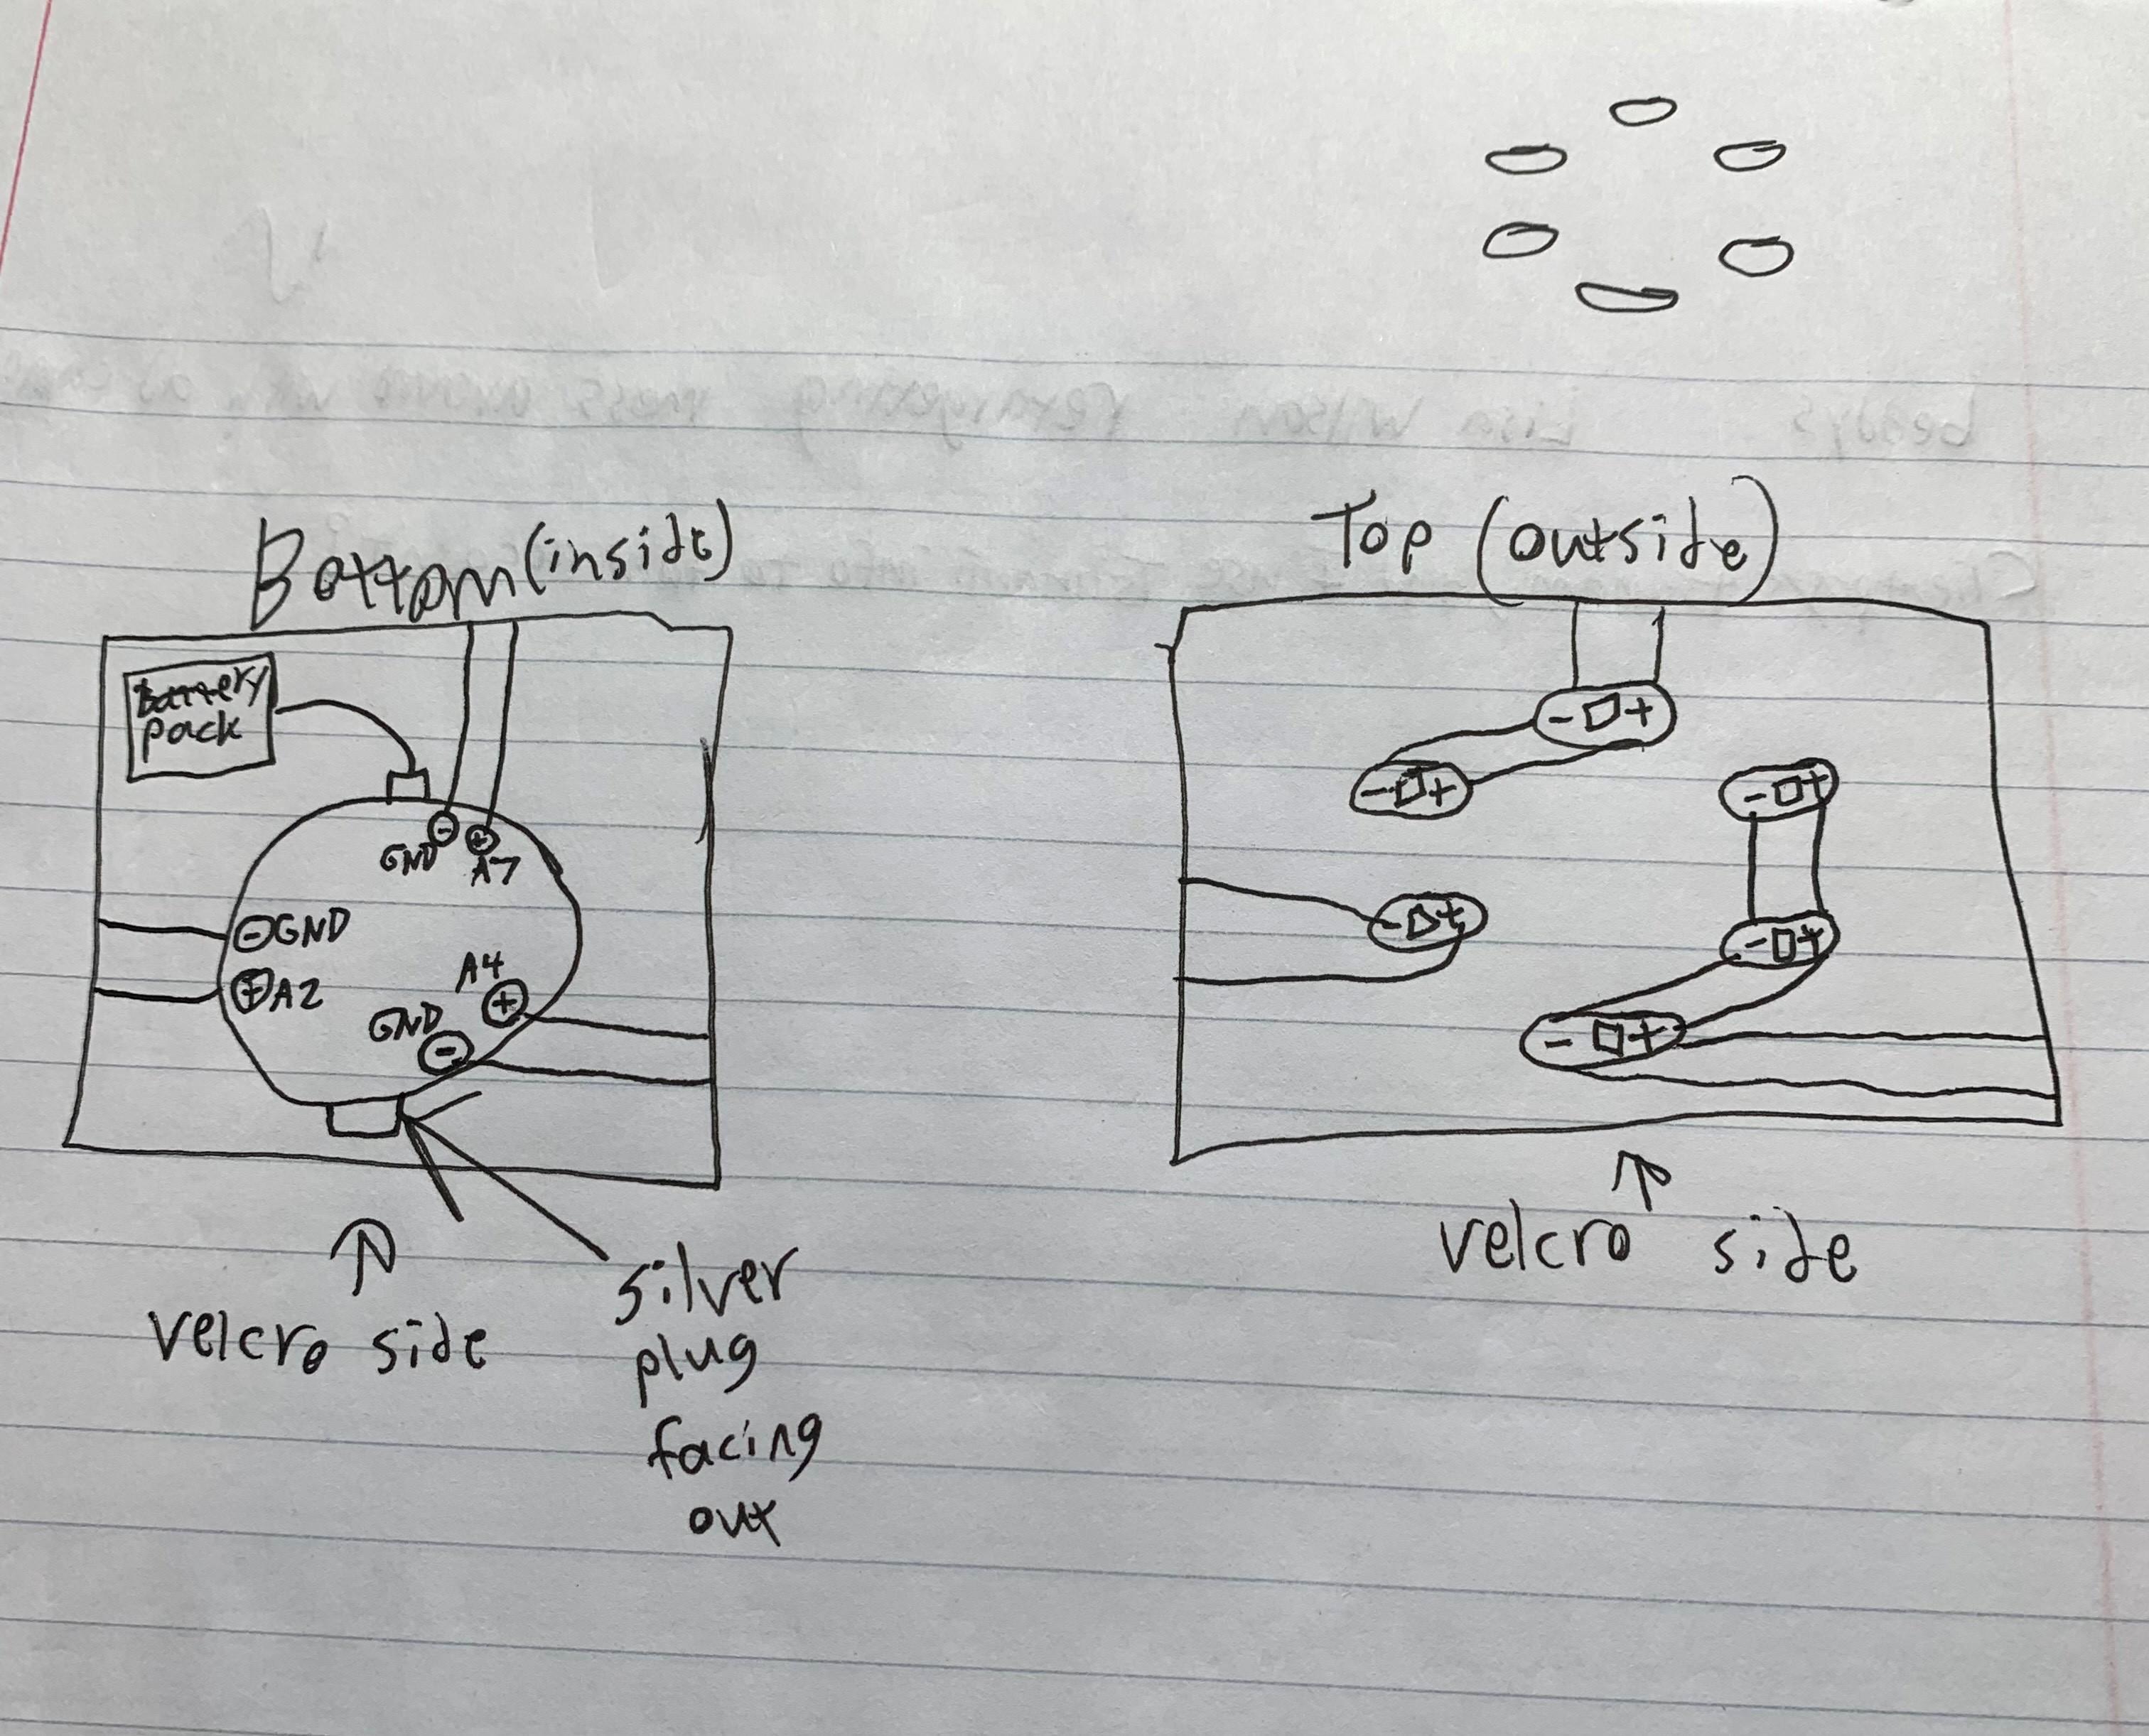 Bottom (inside)
Battery
pack
- +
GND A7
- GND
+ A2
A4
+
GND
-
velcro side
silver
plug
facing
out
Top (outside)
- +
- +
- +
- +
- +
- +
velcro side